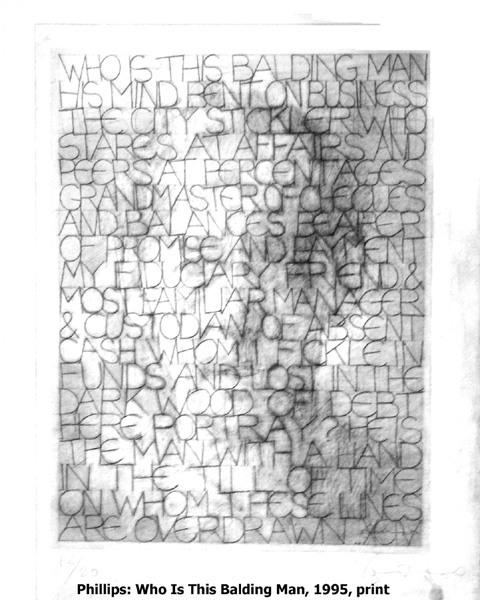 WHO IS THIS BALDING MAN
HIS MIND BENT ON BUSINESS
THE CITY STICKLER WHO
STARES AT AFFAIRS AND
PEERS AT PERCENTAGES
GRANDMASTER OF CHEQUES
AND BALANCES BEARER
OF PROMISE AND PAYMENT
MY FIDUCIARY FRIEND &
MOST FAMILIAR MANAGER
& CUSTODIAN OF ABSENT
CASH WHOM I FICKLE IN
FUNDS AND LOST IN THE
DARK WOOD OF DEBT
HERE PORTRAY? HE IS
THE MAN WITH A HAND
IN THE TILL OF TIME
ON WHOM THESE LINES
ARE OVERDRAWN
Phillips: Who Is This Balding Man, 1995, print